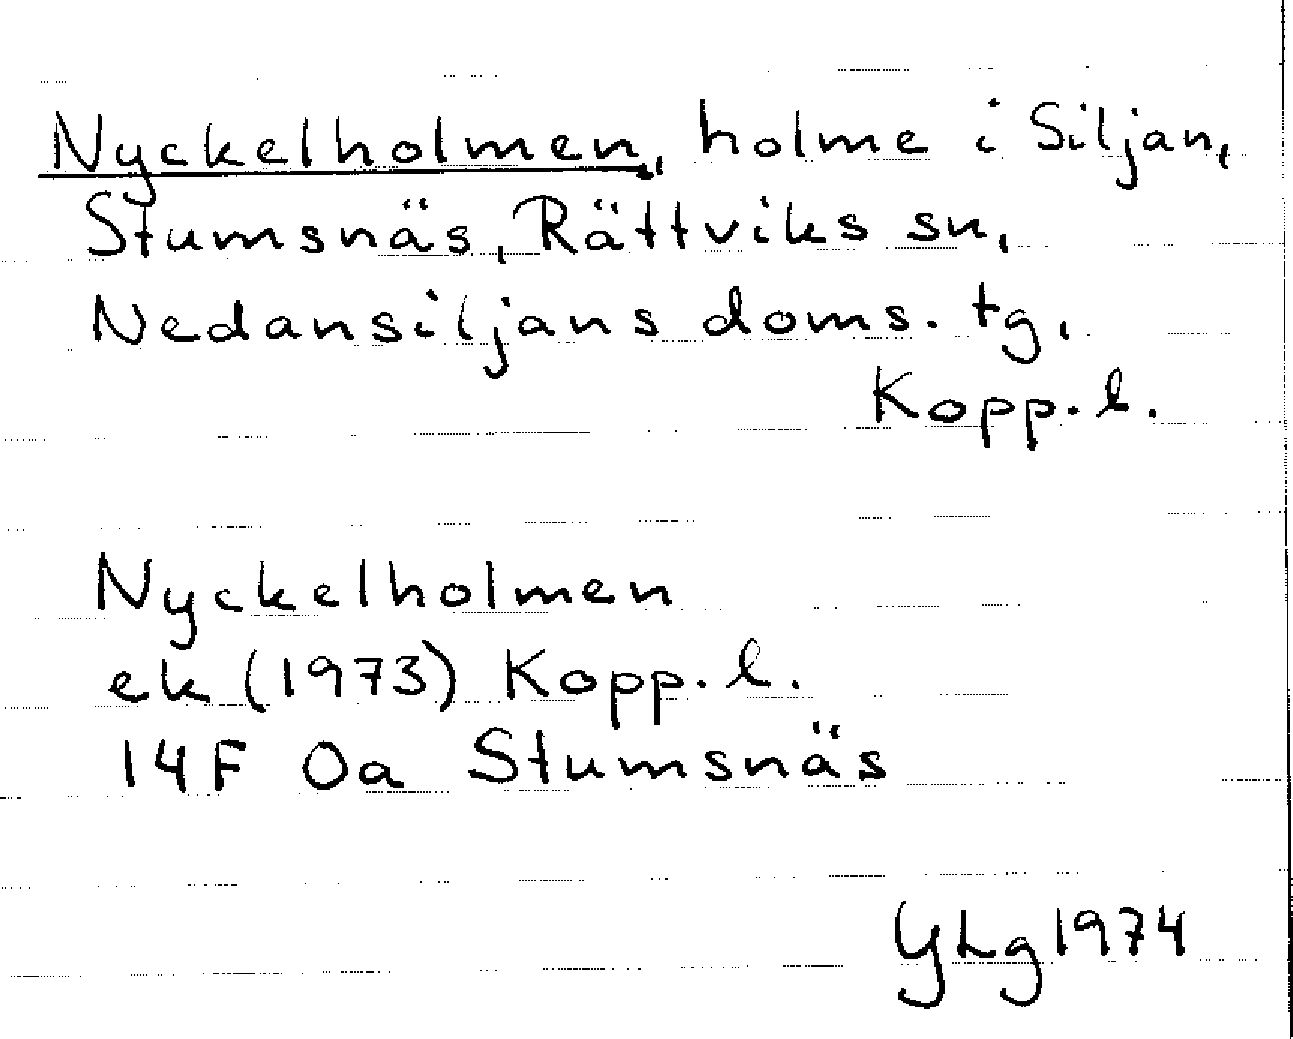 Nyckelholmen, holme i Siljan,
Stumsnäs, Rättviks sn,
Nedansiljans doms. tg,
Kopp. l.
Nyckelholmen
ek (1973) Kopp. l.
14F 0a Stumsnäs
YLg 1974